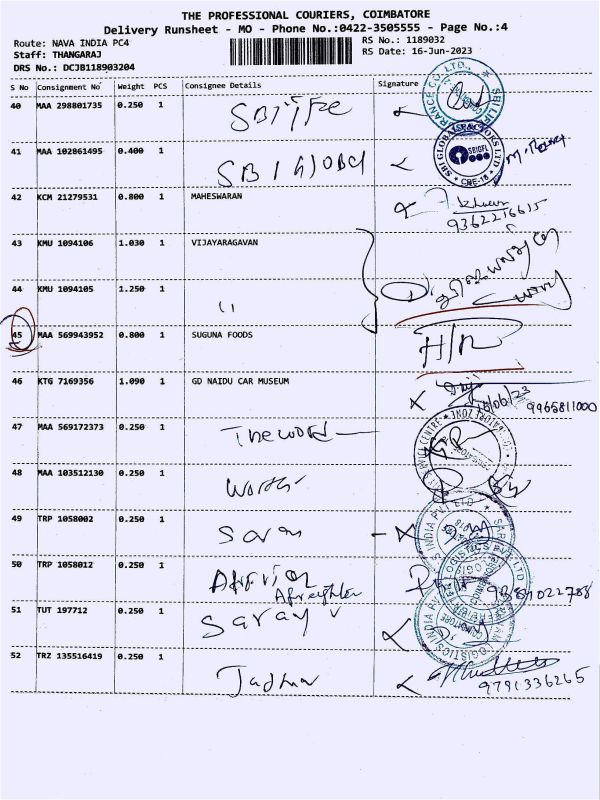 THE PROFESSIONAL COURIERS, COIMBATORE
Delivery Runsheet - MO - Phone No.:0422-3505555 - Page No.:4
Route: NAVA INDIA PC4 RS No.: 1189032
Staff: THANGARAJ RS Date: 16-Jun-2023
DRS No.: DCJB118903204
S No Consignment No Weight PCS Consignee Details Signature
40 MAA 298801735 0.250 1 SBI life
41 MAA 102861495 0.400 1 SBI Global
SBI GLOBAL FACTORS LTD
SBIGFL
CBE-18
42 KCM 21279531 0.800 1 MAHESWARAN
9362216615
43 KMU 1094106 1.030 1 VIJAYARAGAVAN
44 KMU 1094105 1.250 1 "
45 MAA 569943952 0.800 1 SUGUNA FOODS H/R
46 KTG 7169356 1.090 1 GD NAIDU CAR MUSEUM
16/06/23 9965811000
47 MAA 569172373 0.250 1
48 MAA 103512130 0.250 1
49 TRP 1058002 0.250 1
50 TRP 1058012 0.250 1
51 TUT 197712 0.250 1
52 TRZ 135516419 0.250 1
9791336265